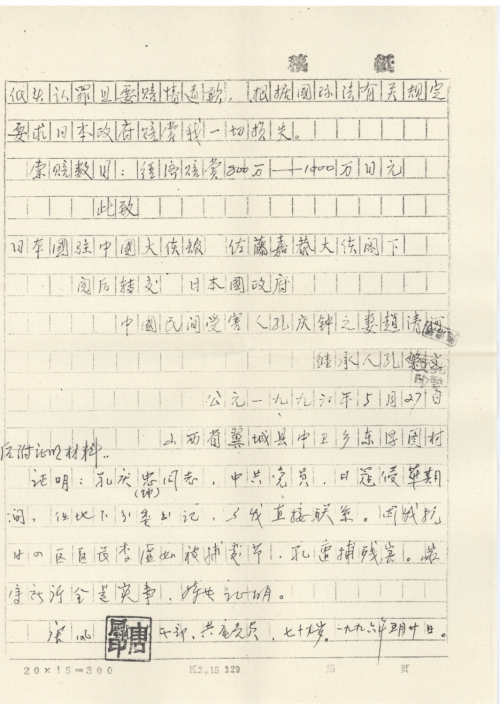 稿 纸
低头认罪且要赔情道歉，根据國际法有关规定
要求日本政府赔偿我一切损失。
索赔数目：经济赔偿800万——1400万日元
此致
日本國驻中國大使馆 佐藤嘉恭大使阁下
阅后转交 日本國政府
中國民间受害人孔庆钟之妻趙清
继承人孔繁
公元一九九六年5月27日
后附证明材料：
山西省翼城县中卫乡东 村
证明：孔庆忠同志，中共党员，日寇侵華期
(钟)
间，任地下 书记，与我直接联系。因我抗
日四区区 李 被捕 节，孔遭捕残害。
所 全是实事，特此证明。
唐
干部，共 党员，七十 岁。一九九六年五月廿日。
20×15=300
K3.15 129
第 页